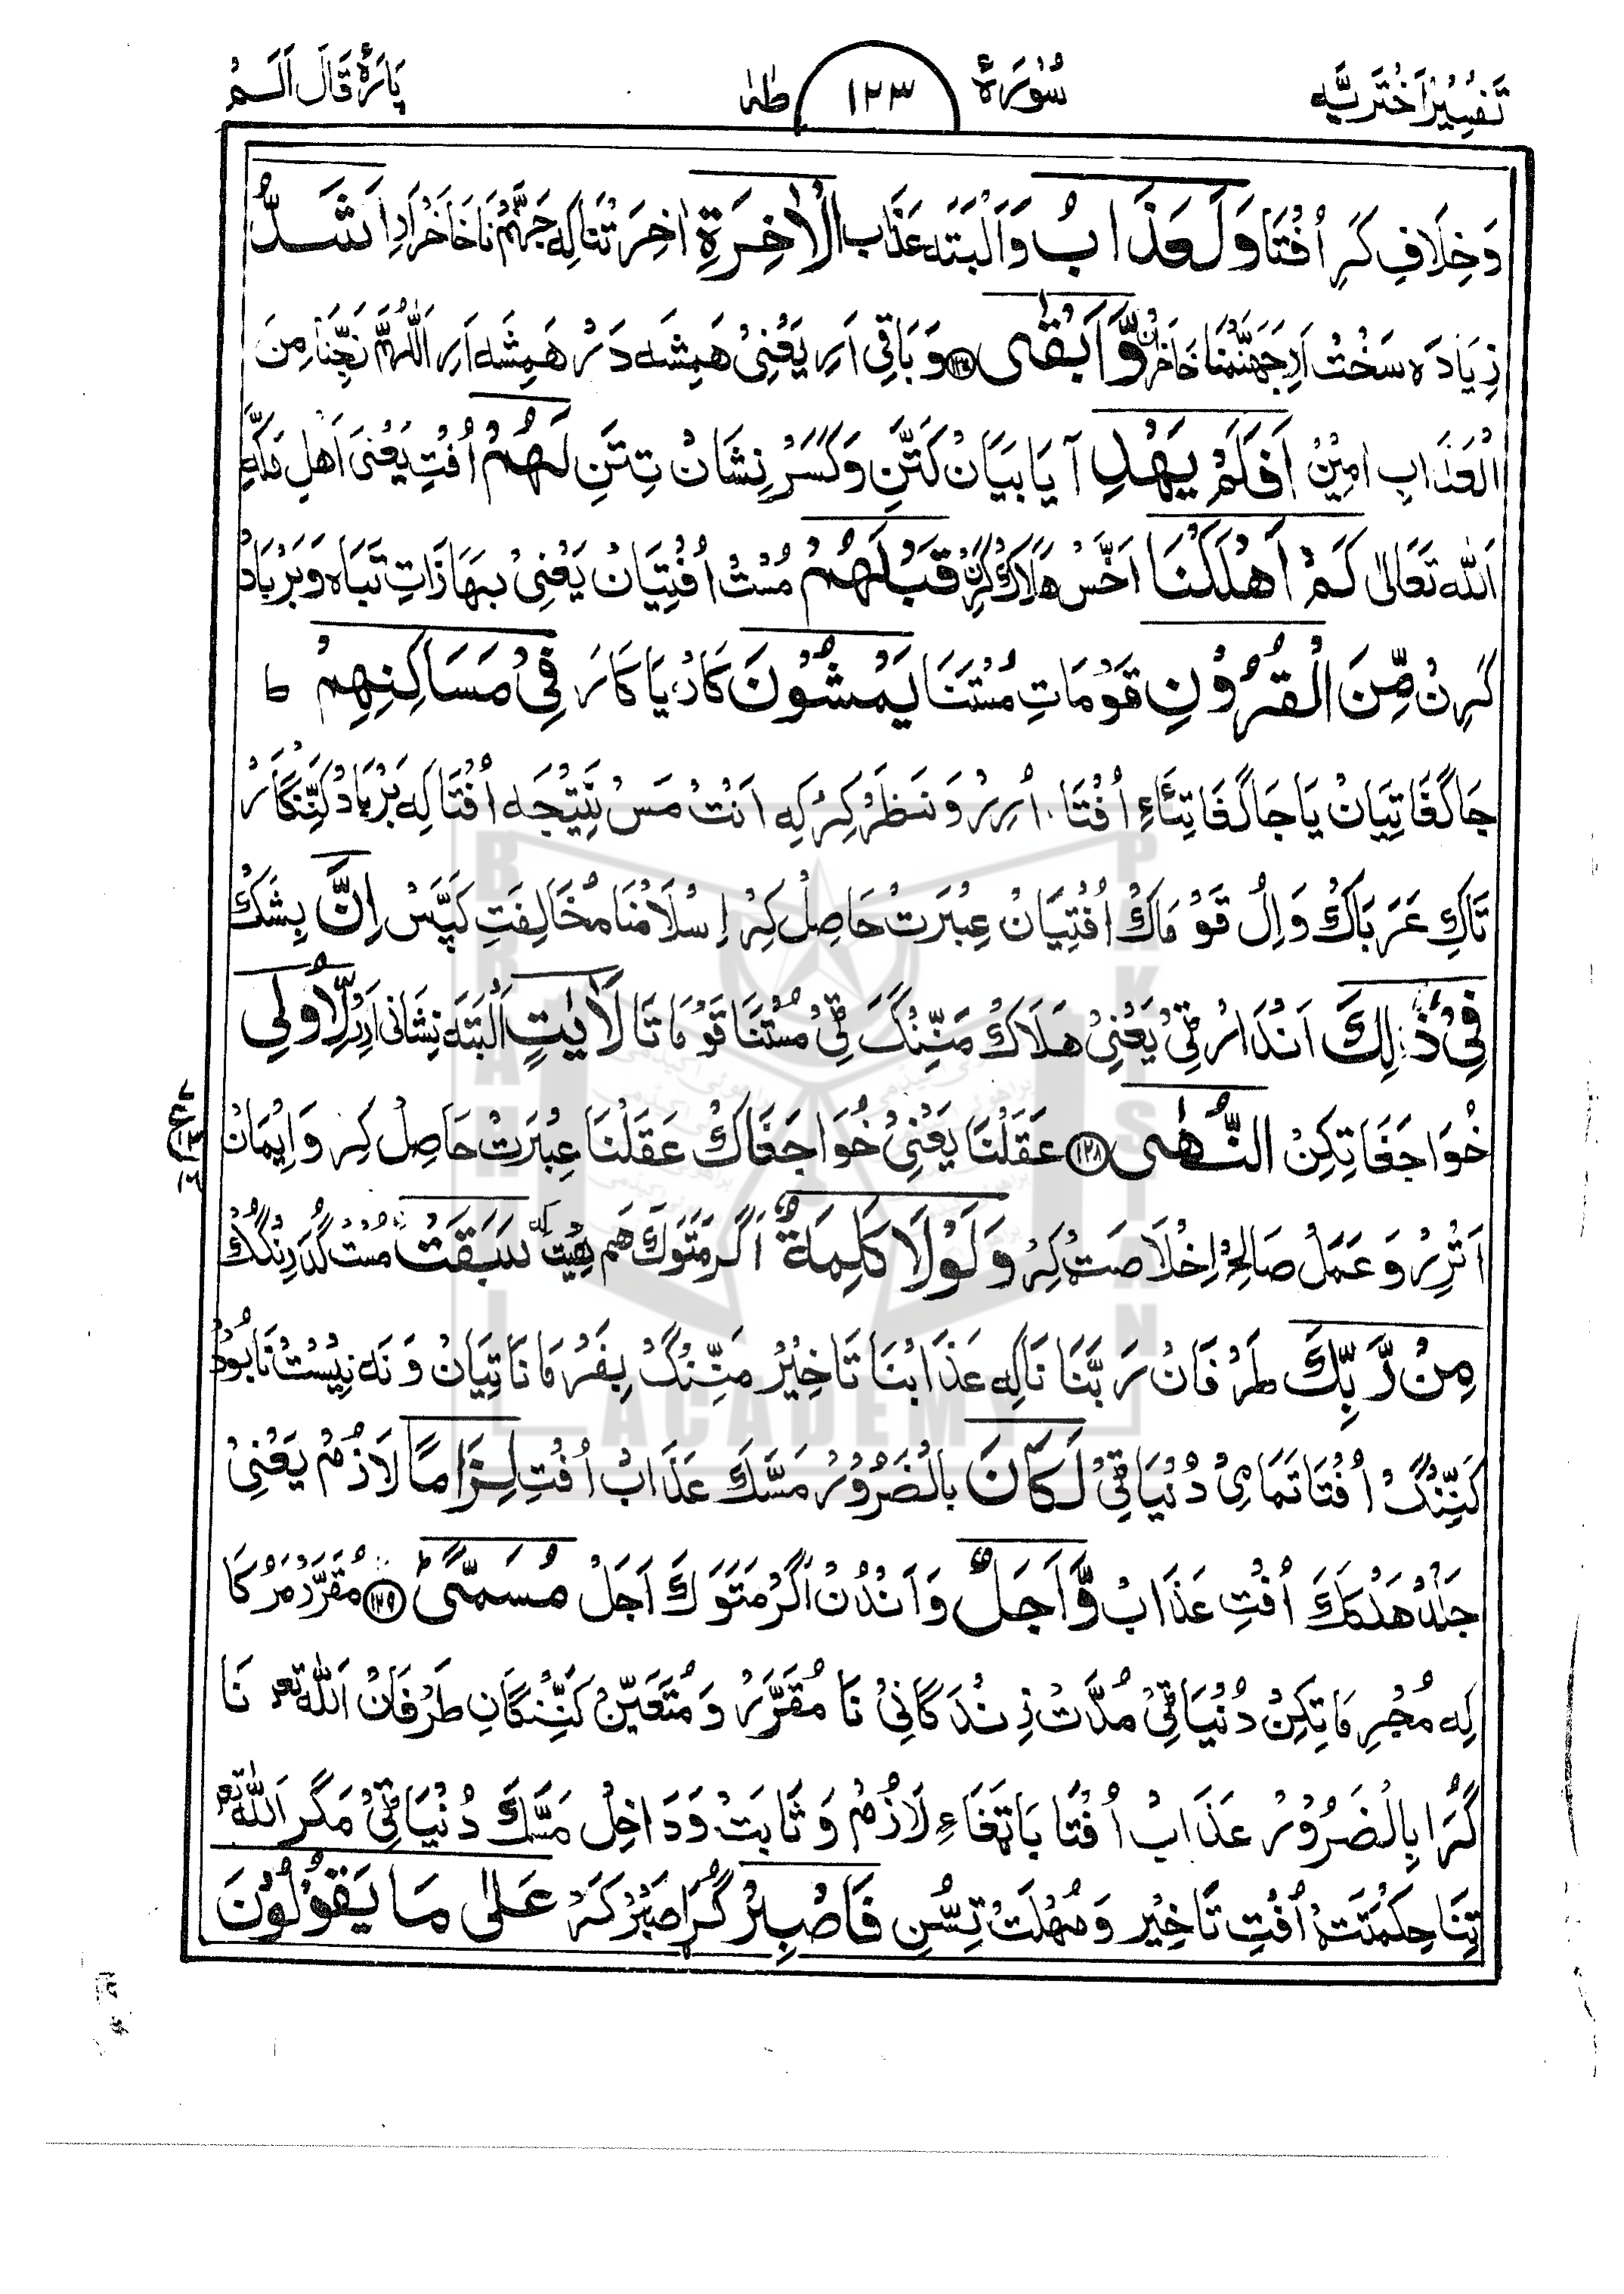 تَفسِیْرِ اَخْتَرِیَّہ سُوْرَۃ ۱۲۳ طٰہٰ پَارَۂ قَالَ اَلَمْ
وَخِلَافِ کَرِ اُفْتَا وَلَعَذَابُ وَاَلْبَتَہ عَذَاب الْاٰخِرَۃِ اٰخِرَتْنَا لِہ جَہَنَّمْ نَا خَاخَرْ اَدِ اَشَدُّ
زِیَادَہ سَخْتْ اَرِ جَہَنَّمْنَا خَاخَرْانْ وَّاَبْقٰی وَبَاقِی اَرِ یَعْنِیْ ھَمِیشَہ دَرْ ھَمِیْشَہ اَرِ اَللّٰہُمَّ نَجِّنَا مِنَ
الْعَذَابِ اٰمِیْنْ اَفَلَمْ یَہْدِ آیَا بَیَانْ کَتَّنِ وَکَسَرْ نِشَانْ تِتَنِ لَہُمْ اُفْتِ یَعْنِیْ اَھْلِ مَکَّہِ
اَللّٰہ تَعَالٰی کَمْ اَھْلَکْنَا اَخَّسْ ھَلَاکْ کَرِنْ قَبْلَہُمْ مُسْتْ اُفْتِیَانْ یَعْنِیْ بَہَازَاتِ تَبَاہ وَبَرْبَادْ
کَرِنْ مِّنَ الْقُرُوْنِ قَوْمَاتِ مُسْتَنَا یَمْشُوْنَ کَادْیَا کَارَ فِیْ مَسَاکِنِہِمْ ط
جَاگَغَاتِیَانْ یَا جَاگَغَاتِتَاءِ اُفْتَا، اُرِرْ وَنَظَرْ کِرْ لِہ اَنْتْ مَسْ نَتِیْجَہ اُفْتَا لِہ بَرْبَادْ کَنِّنْگَارْ
تَاکِ عَرَبَاکْ وَاِلْ قَوْمَاکْ اُفْتِیَانْ عِبْرَتْ حَاصِلْ کِرْ اِسْلَامْنَا مُخَالِفَتِ کَپَّسْ اِنَّ بِشَکْ
فِیْ ذٰلِکَ اَنْدَارْٹِیْ یَعْنِیْ ھَلَاکْ مَنِّنْگَ ٹِیْ مُسْتَنَا قَوْمَاتَا لَاٰیٰتٍ اَلْبَتَہ نِشَانِی اَرِرْ لِّاُولِی
خُوَاجَغَاتِکِنْ النُّہٰی ۱۲۸ عَقَلْنَا یَعْنِیْ خُوَاجَغَاکْ عَقَلْنَا عِبْرَتْ حَاصِلْ کِرِ وَاِیْمَانْ
اَتْرِرْ وَعَمَلْ صَالِحْ اِخْلَاصَتْ کِرْ وَلَوْلَا کَلِمَۃٌ اَگَرْ مَتَوَکَ ھَم ھِیْت کہ سَبَقَتْ مُسْت گُدَرِنْگُکْ
مِنْ رَّبِّکَ طَرْفَانْ رَبَّنَا نَالِہ عَذَابْنَا تَاخِیْرْ مَنِّنْگْ بِفَرْمَانَاتِیَانْ وَنَہ نِیْسْتْ نَابُوْدْ
کَنِّنْگْ اُفْتَا تَمَامِیْ دُنْیَاٹِیْ لَکَانَ بِالْضَرُوْرْ مَسَّکَ عَذَابْ اُفْتِ لِزَامًا لَازُمْ یَعْنِیْ
جَلْدْ ھَدْکَکَ اُفْتِ عَذَابْ وَّاَجَلٌ وَاَنْدُنْ اَگَرْ مَتَوَکَ اَجَلْ مُسَمًّی ط ۱۲۹ مُقَرَّرْ مَرْکَا
لِہ مُجْرِمَاتِکِنْ دُنْیَاٹِیْ مُدَّتْ زِنْدَگَانِیْ نَا مُقَرَّرْ وَمُتَعَیِّنْ کَنِّنْگَانِ طَرْفَانْ اَللّٰہ تع نَا
گُرَا بِالْضَرُوْرْ عَذَابْ اُفْتَا بَاتِغَاءِ لَازُمْ وَثَابَتْ وَدَاخِلْ مَسَّکَ دُنْیَاٹِیْ مَگَر اَللّٰہ تع
تِنَا حِکْمَتَتْ اُفْتِ تَاخِیْر وَمُہْلَتْ تِسُّنِ فَاصْبِرْ گُرَا صَبْرْ کَرْ عَلٰی مَا یَقُوْلُوْنَ